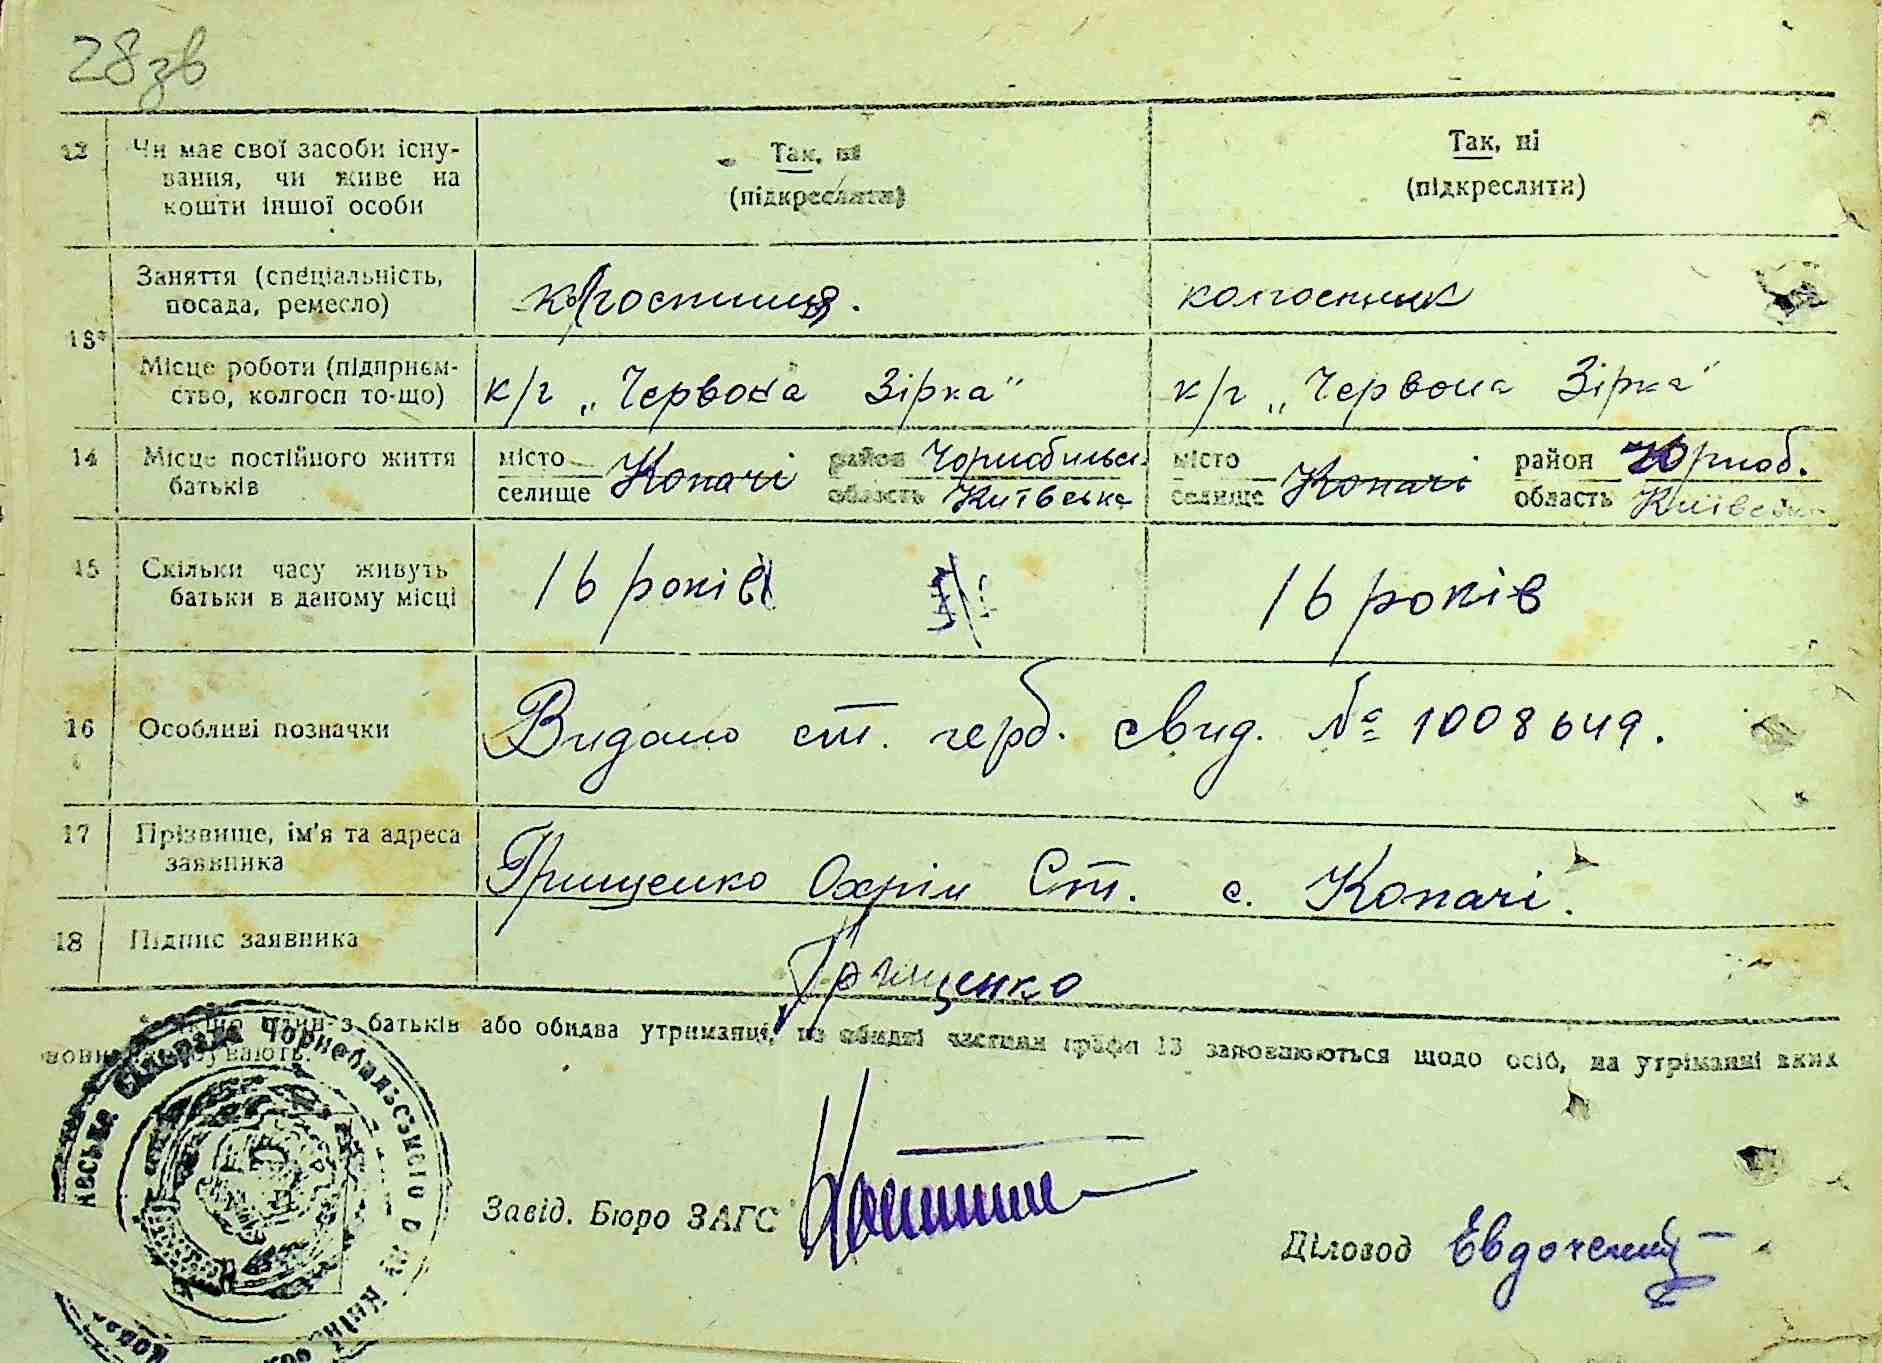 28зв
12 Чи має свої засоби існу- Так, ні Так, ні
вання, чи живе на (підкреслити) (підкреслити)
кошти іншої особи
Заняття (спеціальність, колгоспниця. колгоспник
посада, ремесло)
13*
Місце роботи (підприєм- к/г „Червона Зірка" к/г „Червона Зірка"
ство, колгосп то-що)
14 Місце постійного життя місто Копачі район Чорнобильс. місто Копачі район Чорноб.
батьків селище область Київська селище область Київська
15 Скільки часу живуть 16 років 16 років
батьки в даному місці
16 Особливі позначки Видано ст. герб. свид. № 1008649.
17 Прізвище, ім'я та адреса Грищенко Охрім Ст. с. Копачі.
заявника
18 Підпис заявника Грищенко
* Якщо один з батьків або обидва утриманці, то обидві частини графи 13 заповнюються щодо осіб, на утриманні яких
вони
Сільрада Чорнобильського
Завід. Бюро ЗАГС
Діловод